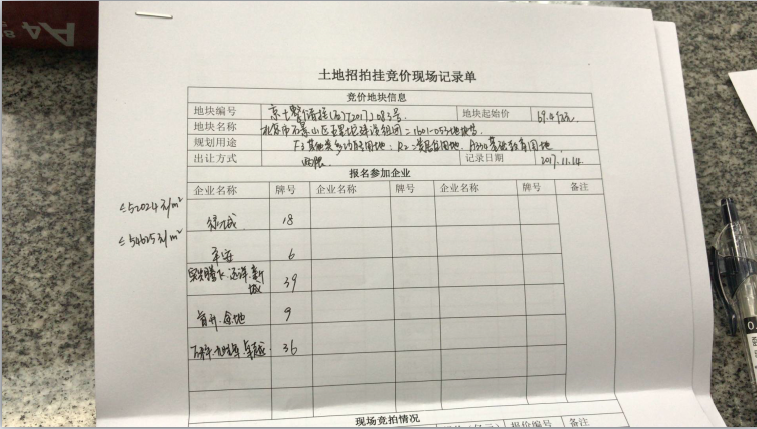 A4
土地招拍挂竞价现场记录单
竞价地块信息
地块编号 京土整储挂(石)[2017]083号 地块起始价 69.4亿元
地块名称 北京市石景山区 1601-053地块等
规划用途 F3其他类多功能用地、R2二类居住用地、A334基础教育用地
出让方式 记录日期 2017.11.14
报名参加企业
企业名称 牌号 企业名称 牌号 企业名称 牌号 备注
≤52024元/m² 绿城 18
≤54625元/m²
平安 6
腾飞、远洋、新城 39
首开、金地 9
万科 36
现场竞拍情况
报价编号 备注